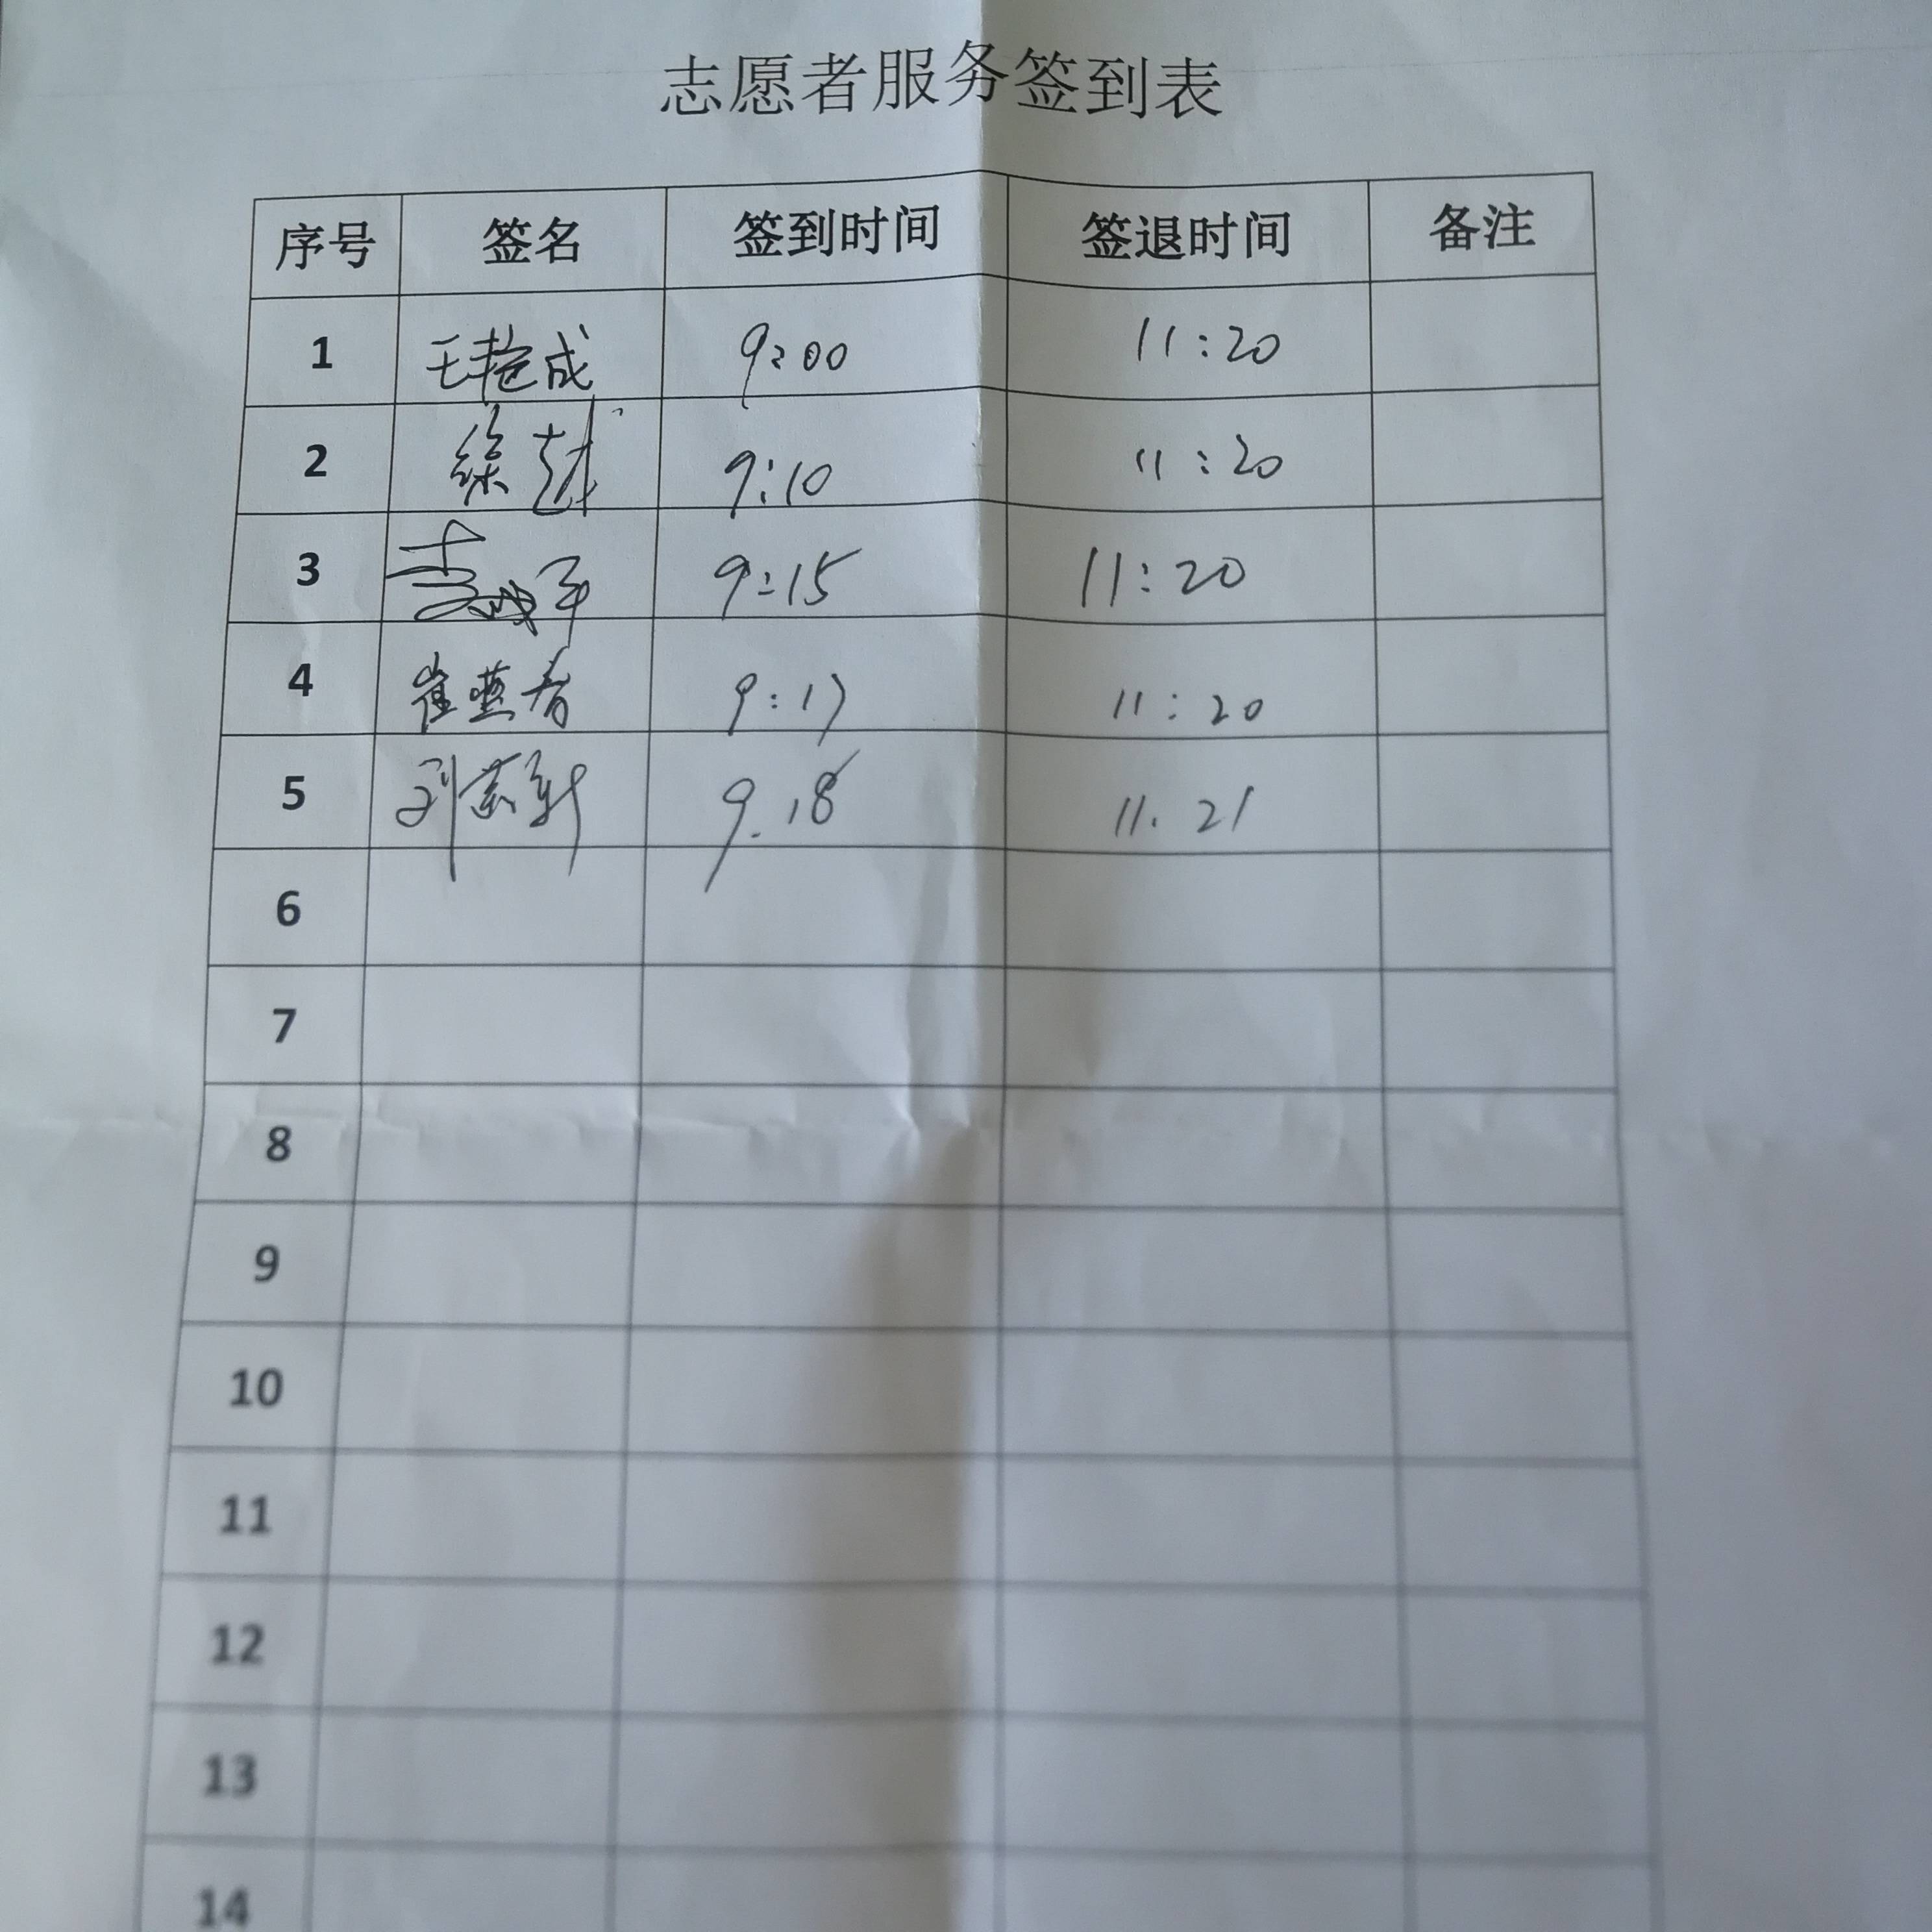 志愿者服务签到表
序号 签名 签到时间 签退时间 备注
1 王艳成 9:00 11:20
2 徐越 9:10 11:20
3 9:15 11:20
4 崔燕春 9:17 11:20
5 刘 9.18 11.21
6
7
8
9
10
11
12
13
14